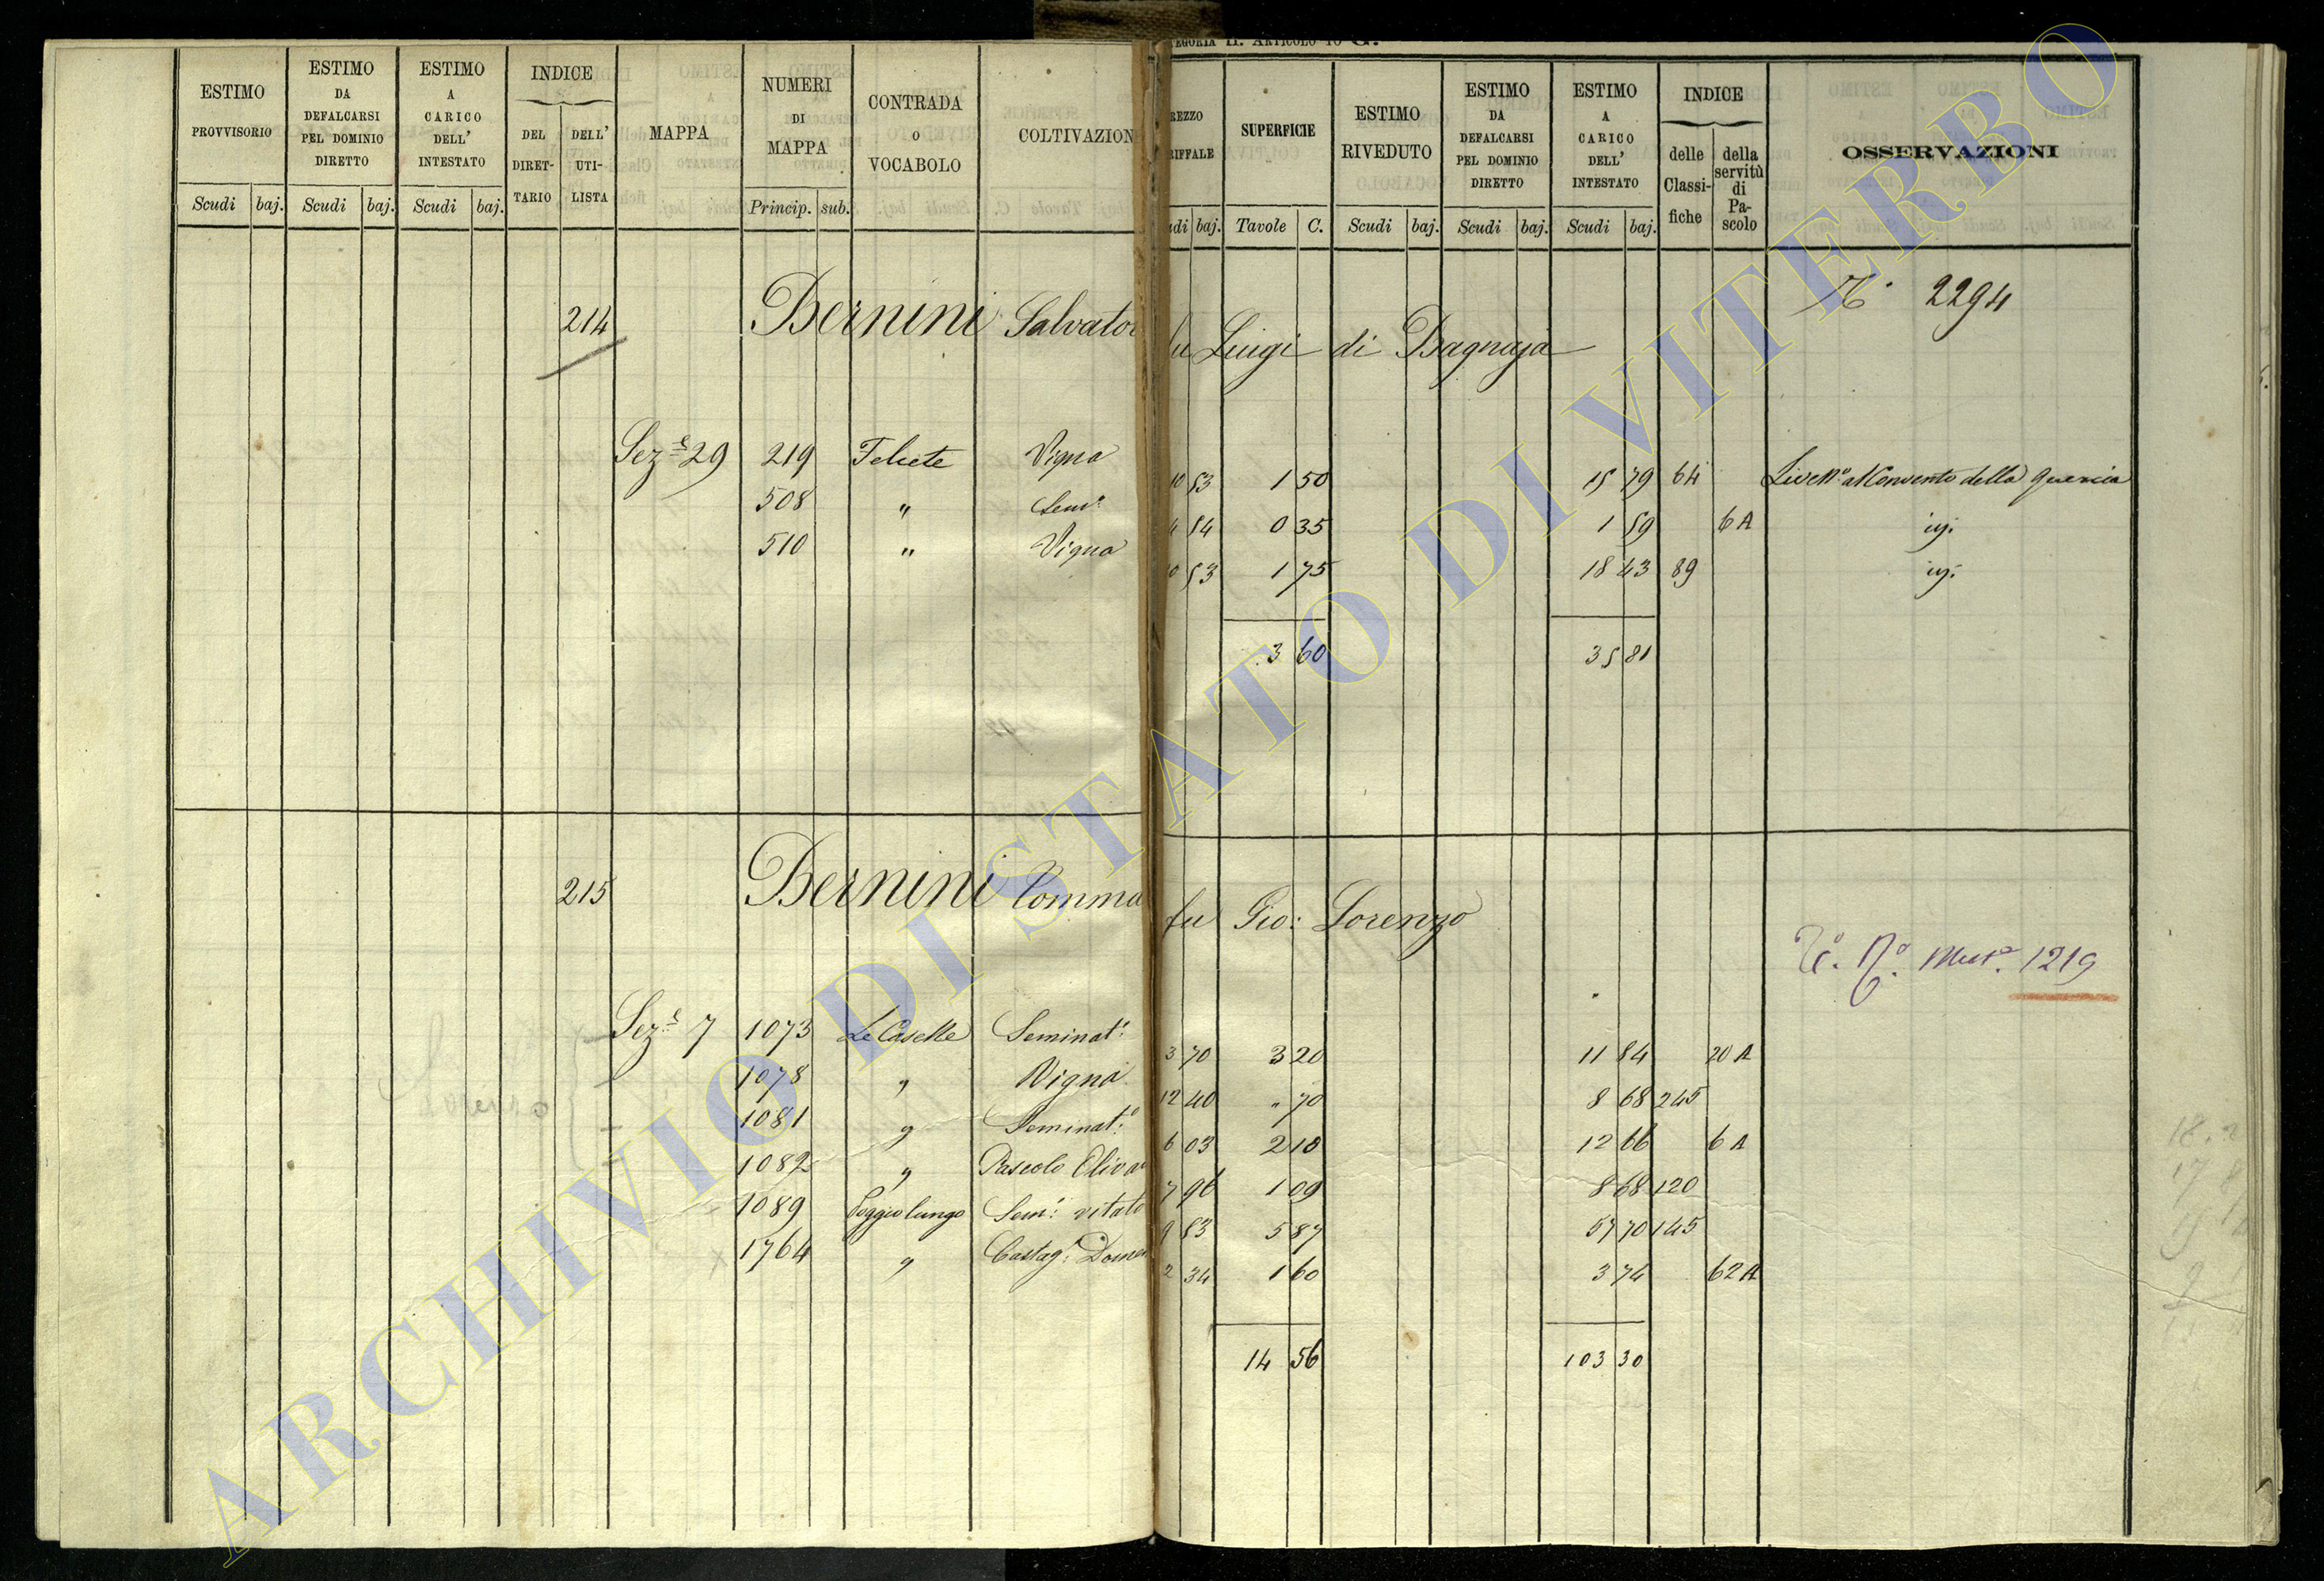 TEGORIA II. ARTICOLO 10 G.
ESTIMO PROVVISORIO
ESTIMO DA DEFALCARSI PEL DOMINIO DIRETTO
ESTIMO A CARICO DELL' INTESTATO
INDICE
DEL DIRET-TARIO
DELL' UTI-LISTA
MAPPA
NUMERI DI MAPPA
CONTRADA O VOCABOLO
COLTIVAZION
REZZO RIFFALE
SUPERFICIE
ESTIMO RIVEDUTO
ESTIMO DA DEFALCARSI PEL DOMINIO DIRETTO
ESTIMO A CARICO DELL' INTESTATO
INDICE
delle Classi-fiche
della servitù di Pa-scolo
OSSERVAZIONI
Scudi baj. Scudi baj. Scudi baj. Princip. sub.
udi baj. Tavole C. Scudi baj. Scudi baj. Scudi baj.
2294
214 Bernini Salvator
fu Luigi di Bagnaja
Sez.e 29 219 Felcete Vigna 10 53 1 50 15 79 64 Livell.o al Convento della Quercia
508 " Sem.o 4 54 0 35 1 59 6 A ivi
510 " Vigna 0 53 1 75 18 43 89 ivi
3 60 35 81
215 Bernini Tomma
fu Gio: Lorenzo
1219
Sez.e 7 1073 Le Caselle Seminat.o 3 70 3 20 11 84 20 A
1078 " Vigna 12 40 " 70 8 68 245
1081 " Seminat.o 6 03 2 10 12 66 6 A
1082 " Pascolo Oliva 7 96 1 09 8 68 120
1089 Poggio lungo Sem.o vitato 9 83 5 87 57 70 145
1764 " Castag.o Dome 2 34 1 60 3 74 62 A
14 56 103 30
ARCHIVIO DI STATO DI VITERBO